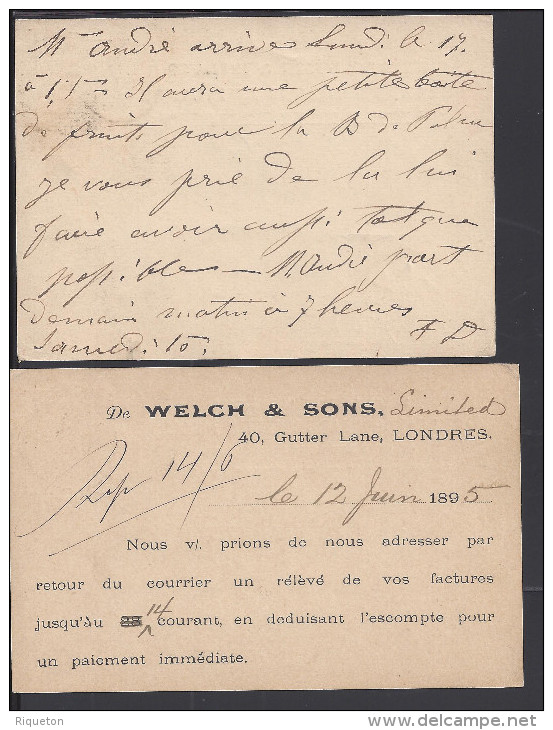 Mr André arrive Lundi le 17.
à 1, Il aura une petite boîte
de fruits pour la B de
je vous prie de la lui
faire avoir aussi tôt que
possible — M. André part
demain matin à 7 heures
Samedi 15. F D
De WELCH & SONS, Limited
40, Gutter Lane, LONDRES.
Rep 14/6
le 12 Juin 1895
Nous v/. prions de nous adresser par
retour du courrier un rélévé de vos factures
jusqu'âu 14 courant, en deduisant l'escompte pour
un paiement immédiate.
Riqueton
delcampe.net